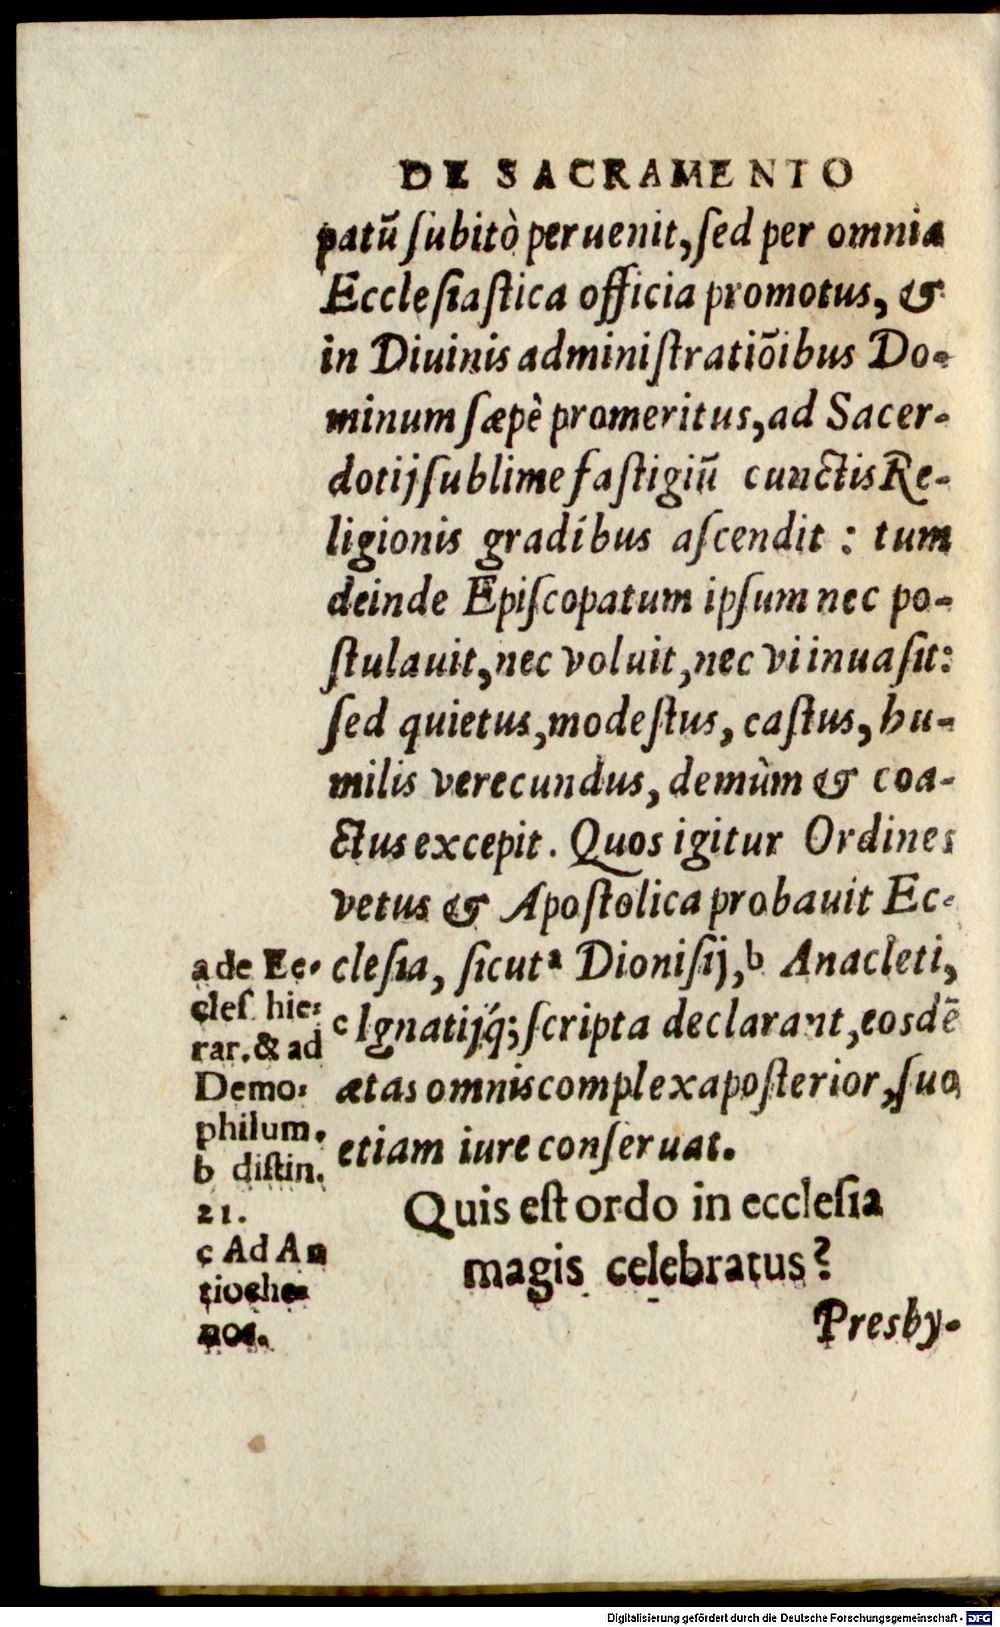 DE SACRAMENTO
patū ſubitò peruenit, ſed per omnia
Eccleſiaſtica officia promotus, &
in Diuinis adminiſtratiōibus Do-
minum ſæpè promeritus, ad Sacer-
dotij ſublime faſtigiū cunctis Re-
ligionis gradibus aſcendit : tum
deinde Epiſcopatum ipſum nec po-
ſtulauit, nec voluit, nec vi inuaſit:
ſed quietus, modeſtus, caſtus, hu-
milis verecundus, demùm & coa-
ctus excepit. Quos igitur Ordines
vetus & Apoſtolica probauit Ec-
cleſia, ſicut a Dioniſij, b Anacleti,
c Ignatijq́; ſcripta declarant, eosdē
ætas omnis complexa poſterior, ſuo
etiam iure conſeruat.
a de Ec-
cleſ. hie-
rar. & ad
Demo-
philum.
b diſtin.
21.
c Ad An
tioche-
nos.
Quis eſt ordo in eccleſia
magis celebratus?
Presby-
Digitalisierung gefördert durch die Deutsche Forschungsgemeinschaft - DFG